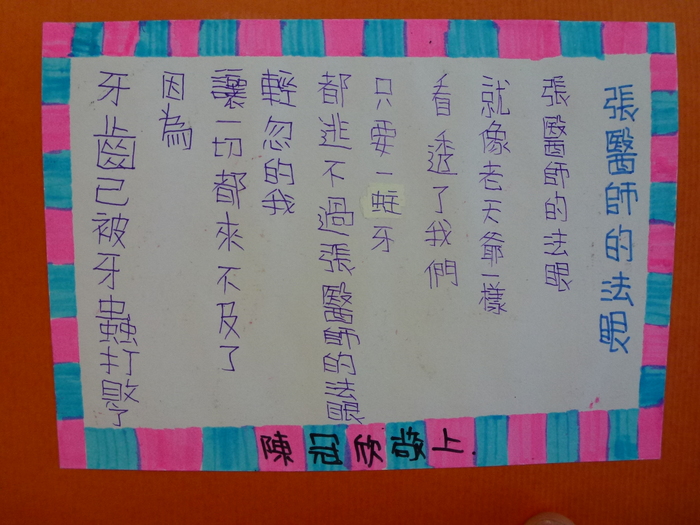 張醫師的法眼
張醫師的法眼
就像老天爺一樣
看透了我們
只要一蛀牙
都逃不過張醫師的法眼
輕忽的我
讓一切都來不及了
因為
牙齒已被牙蟲打敗了
陳冠欣敬上.